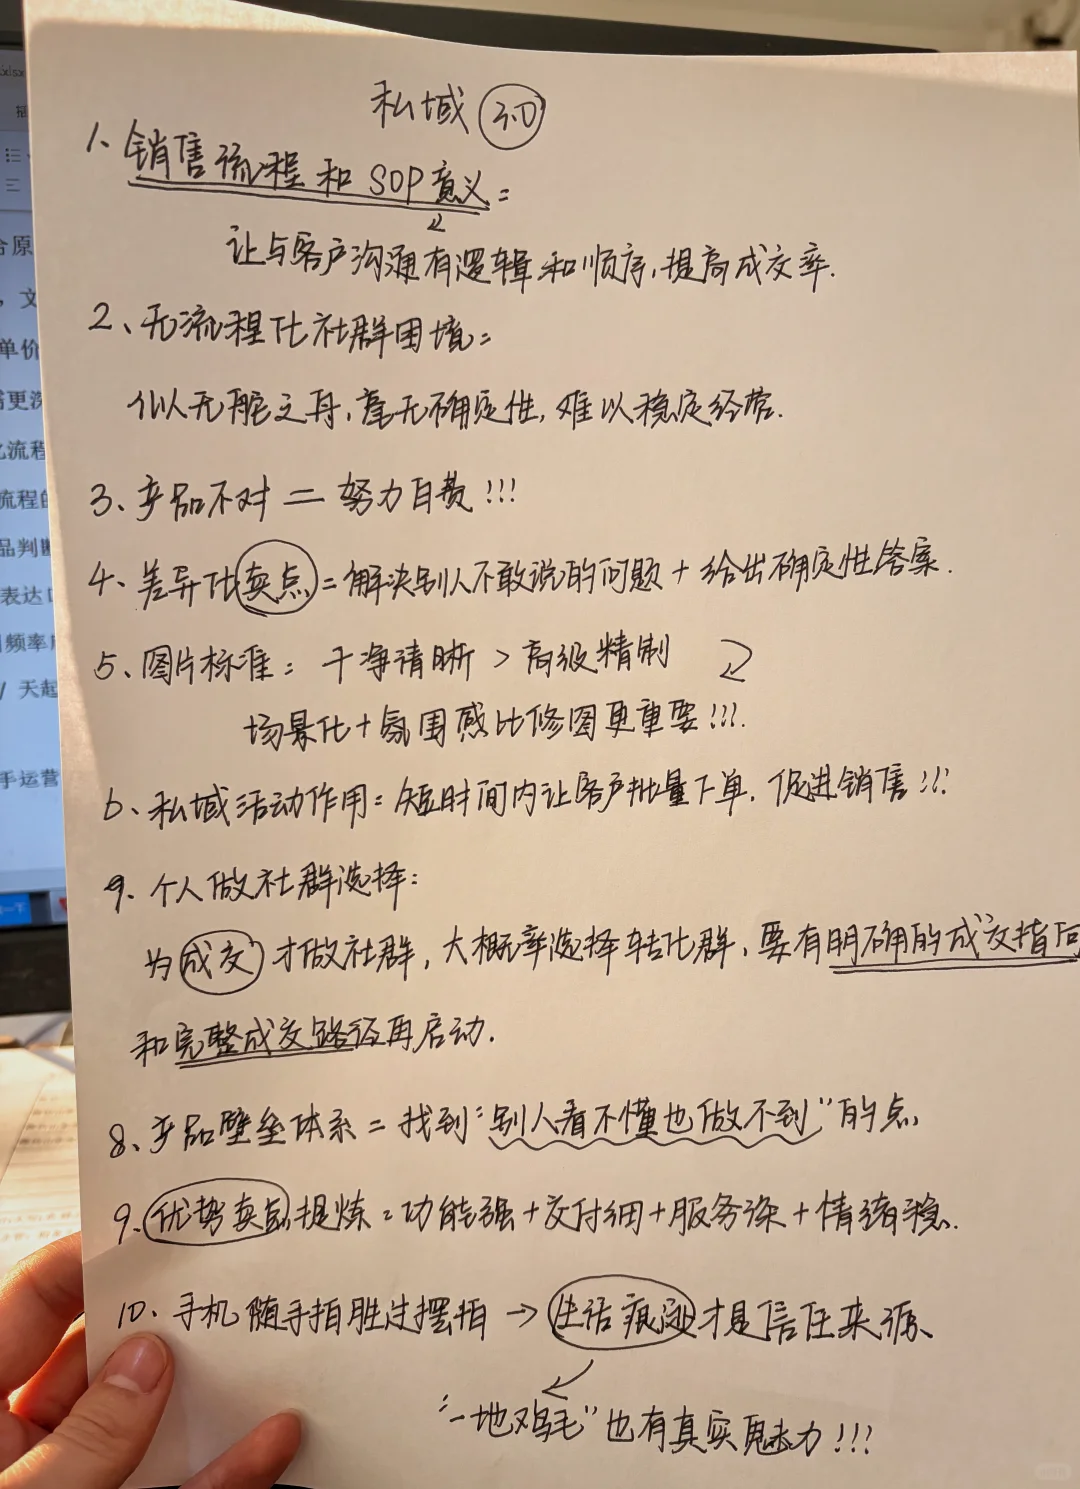 私域 3.0
1、销售流程和SOP意义：
让与客户沟通有逻辑和顺序，提高成交率.
2、无流程化社群困境：
似人无舵之舟，毫无确定性，难以稳定经营.
3、产品不对 = 努力白费!!!
4、差异化卖点=解决别人不敢说的问题+给出确定性答案.
5、图片标准：干净清晰>高级精制
场景化+氛围感比修图更重要!!!.
6、私域活动作用：短时间内让客户批量下单，促进销售!!!
9.个人做社群选择：
为成交才做社群，大概率选择转化群，要有明确的成交指向
和完整成交路径再启动.
8、产品壁垒体系=找到“别人看不懂也做不到”的点，
9、优势卖点提炼：功能强+交付细+服务深+情绪稳.
10、手机随手拍胜过摆拍→生活痕迹才是信任来源、
“一地鸡毛”也有真实魅力!!!
xlsx
插
合原
，文
单价
更深
流程
流程的
品判断
表达
频率
/ 天起
手运营